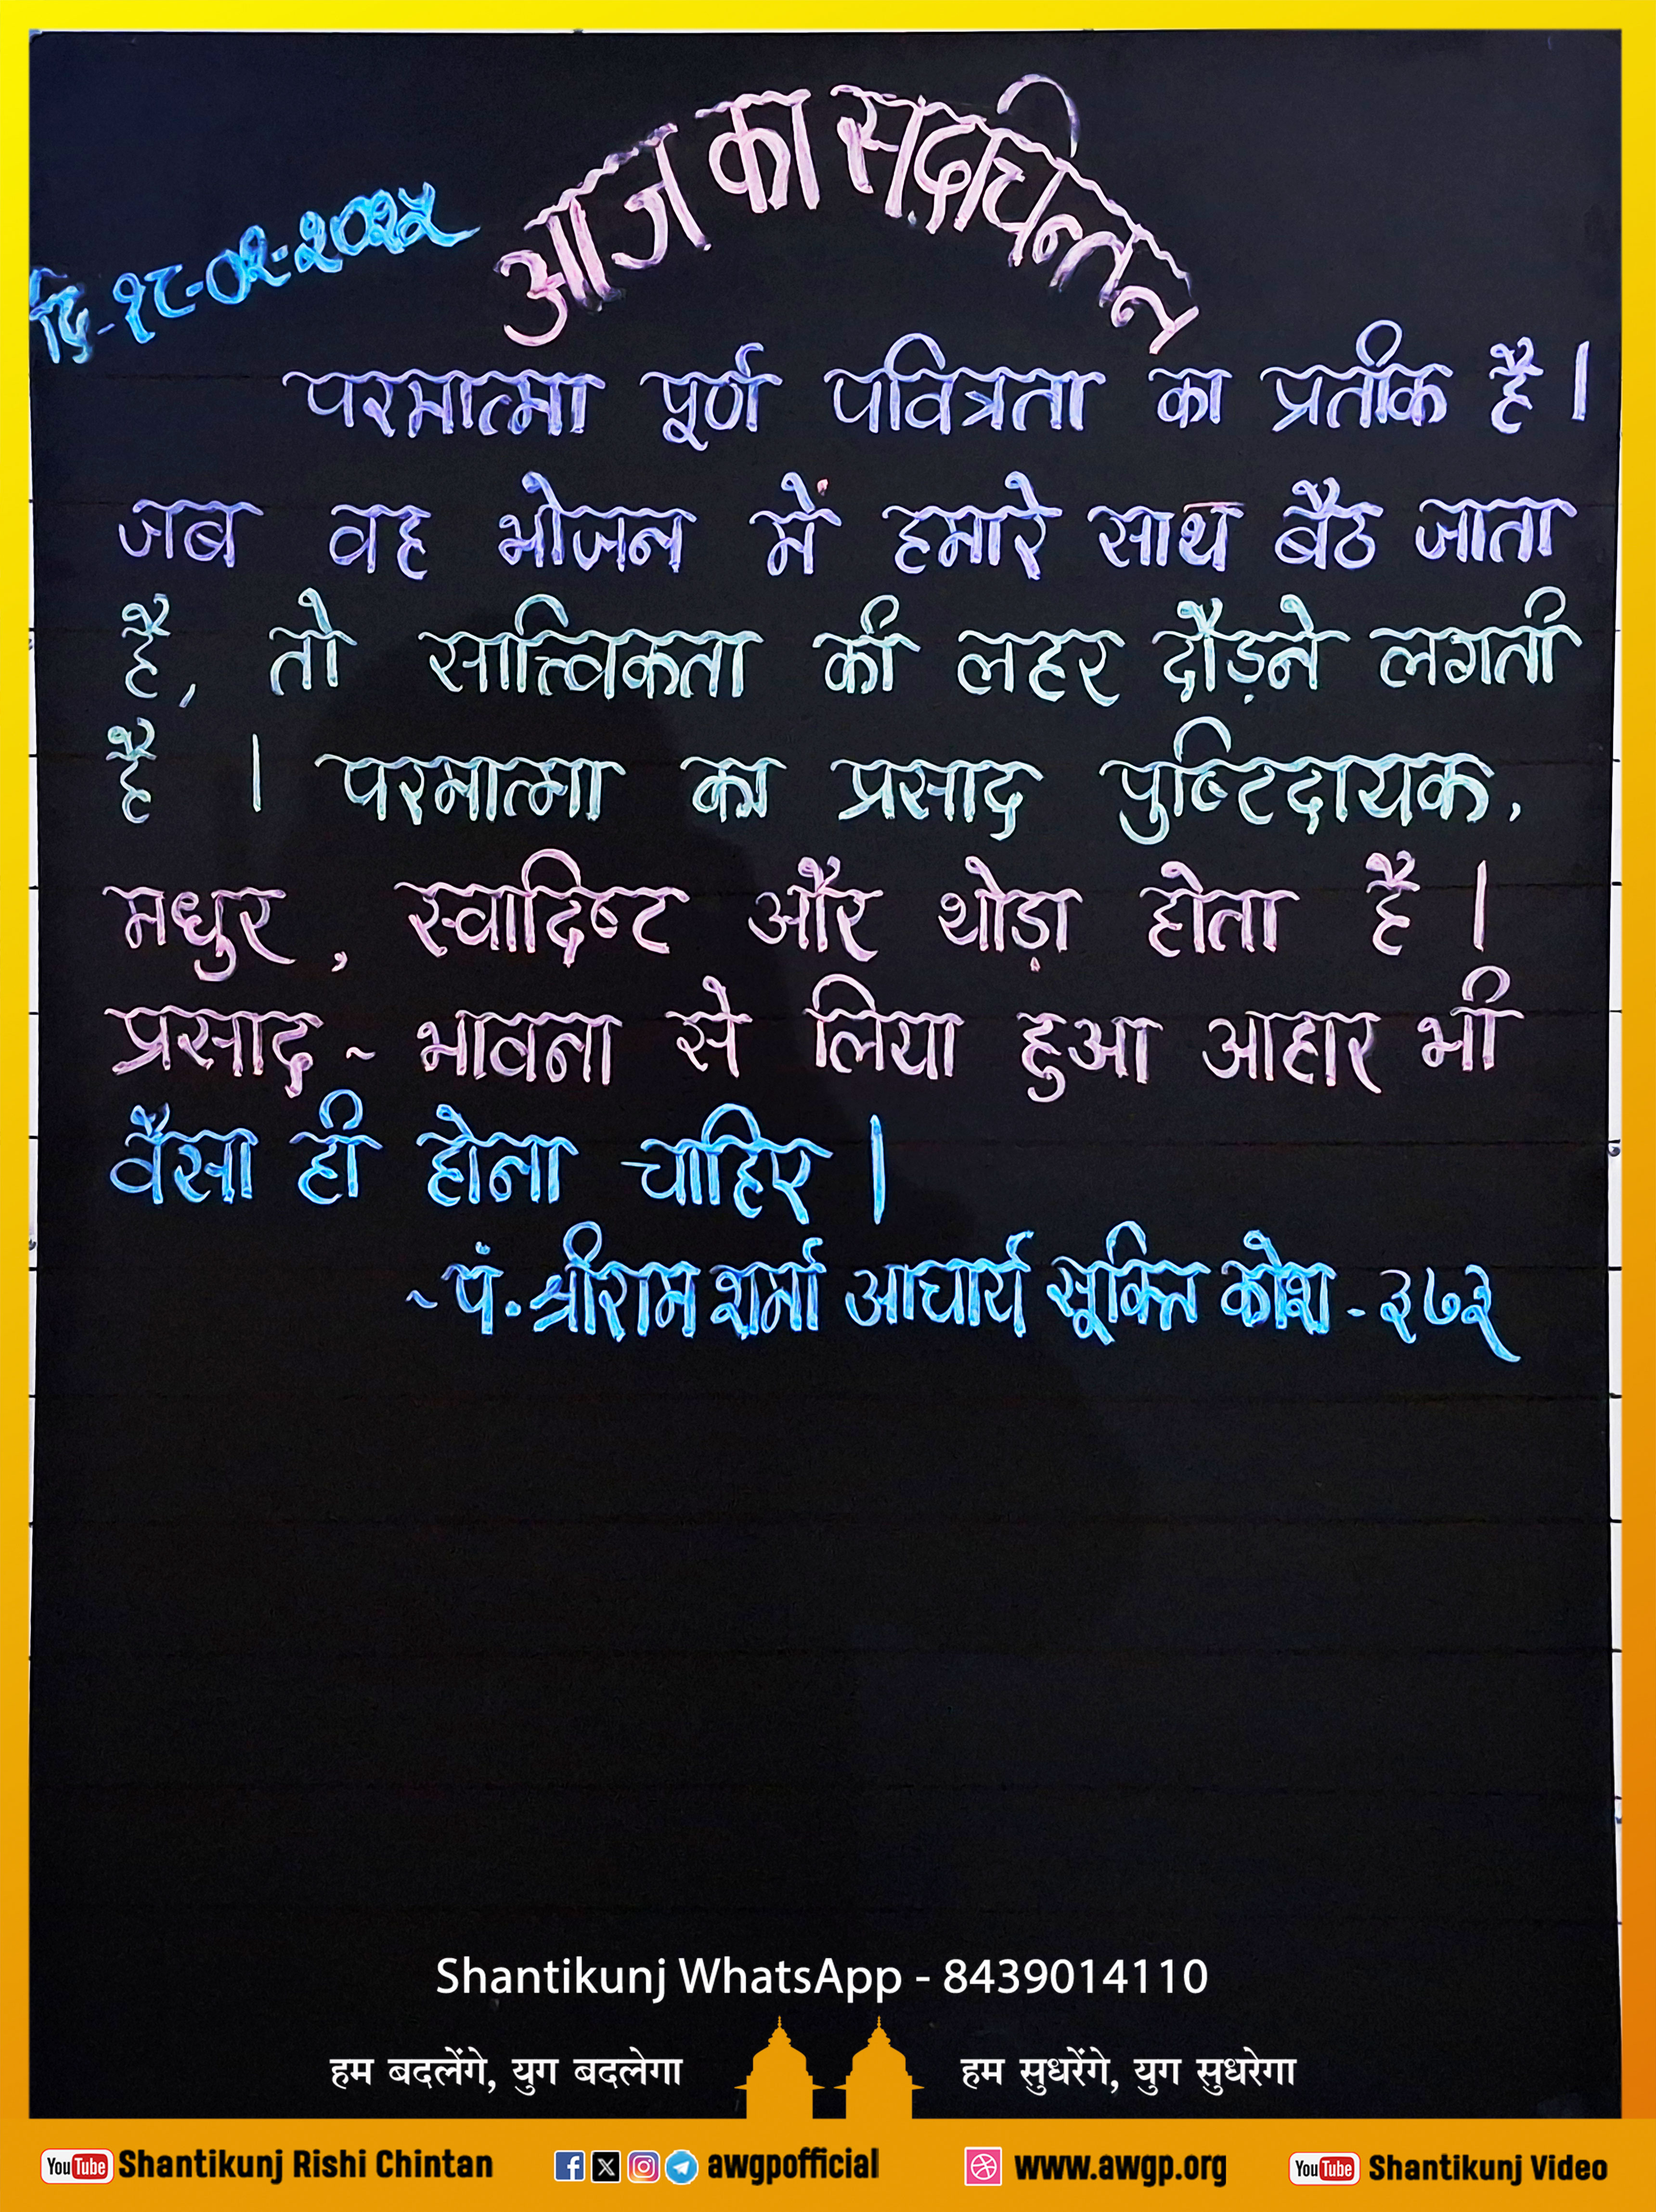 आज का सद्चिन्तन
दि-१८-०२-२०२५
परमात्मा पूर्ण पवित्रता का प्रतीक है।
जब वह भोजन में हमारे साथ बैठ जाता
है, तो सात्त्विकता की लहर दौड़ने लगती
है । परमात्मा का प्रसाद पुष्टिदायक,
मधुर, स्वादिष्ट और थोड़ा होता है ।
प्रसाद - भावना से लिया हुआ आहार भी
वैसा ही होना चाहिए ।
~ पं. श्रीराम शर्मा आचार्य सूक्ति कोश - ३७३
Shantikunj WhatsApp - 8439014110
हम बदलेंगे, युग बदलेगा हम सुधरेंगे, युग सुधरेगा
YouTube Shantikunj Rishi Chintan awgpofficial www.awgp.org YouTube Shantikunj Video